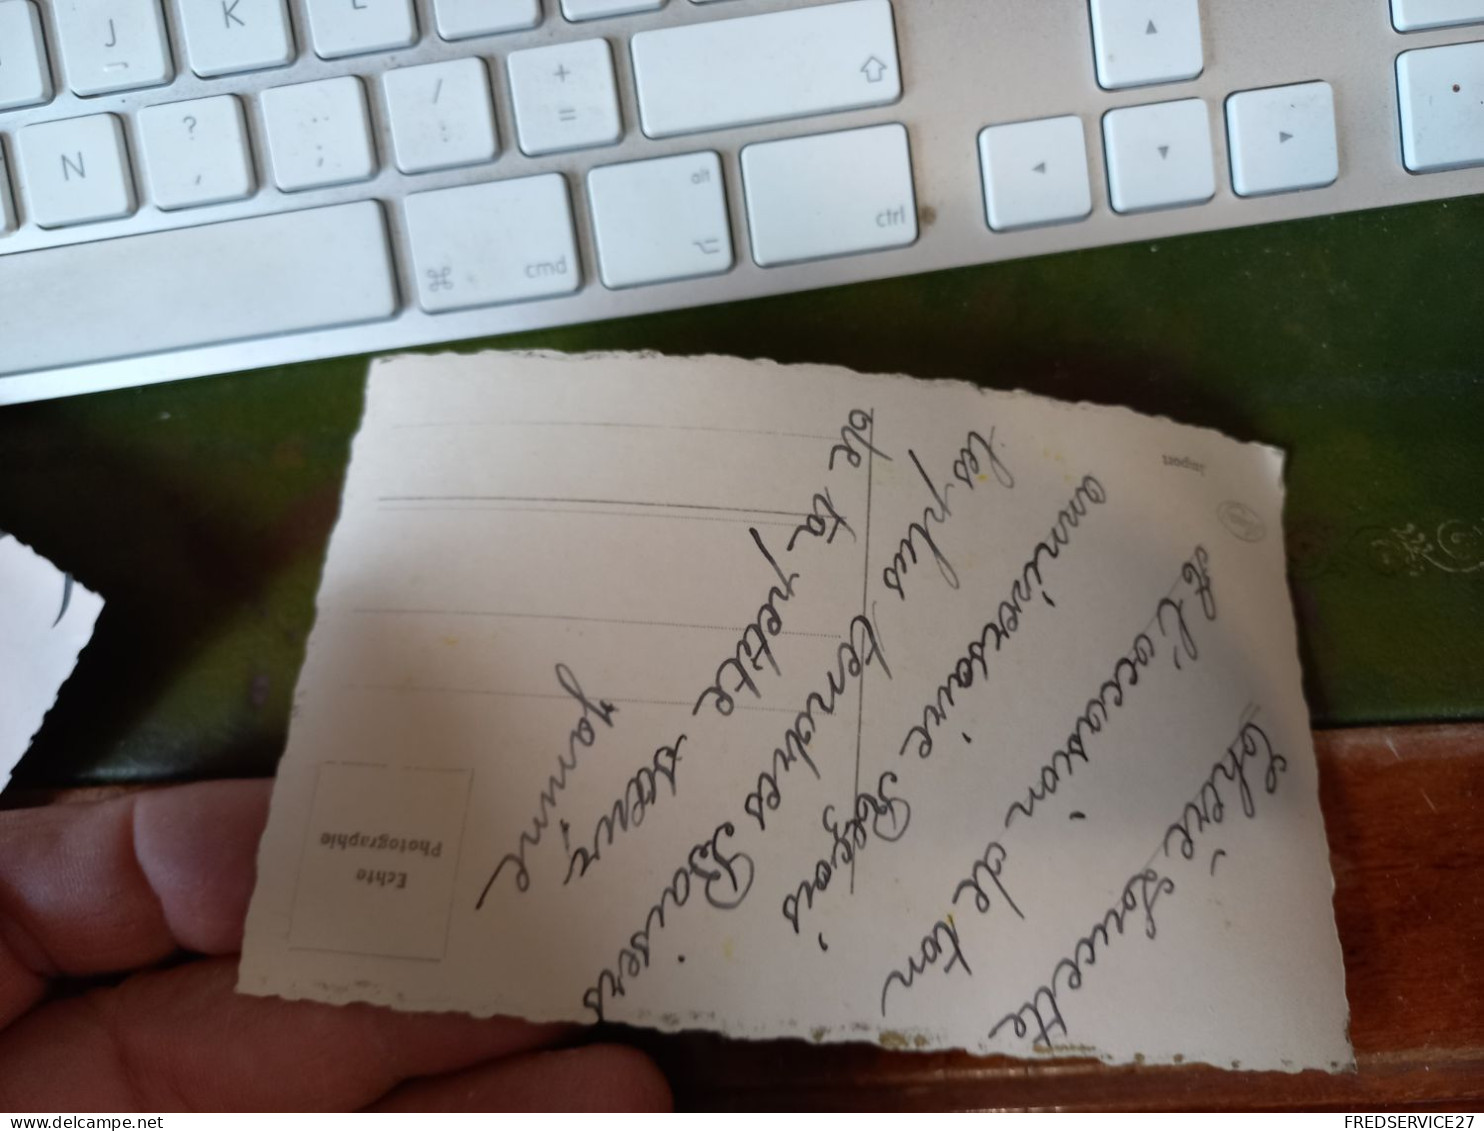 J
K
L
N
?
,
..
;
/
:
+
=
alt
⌘
cmd
⌥
ctrl
import
Echte
Photographie
Chérie Loucette
A l'occasion de ton
anniversaire Reçois
les plus tendres Baisers
de ta petite sœur,
Yanine
www.delcampe.net
FREDSERVICE27